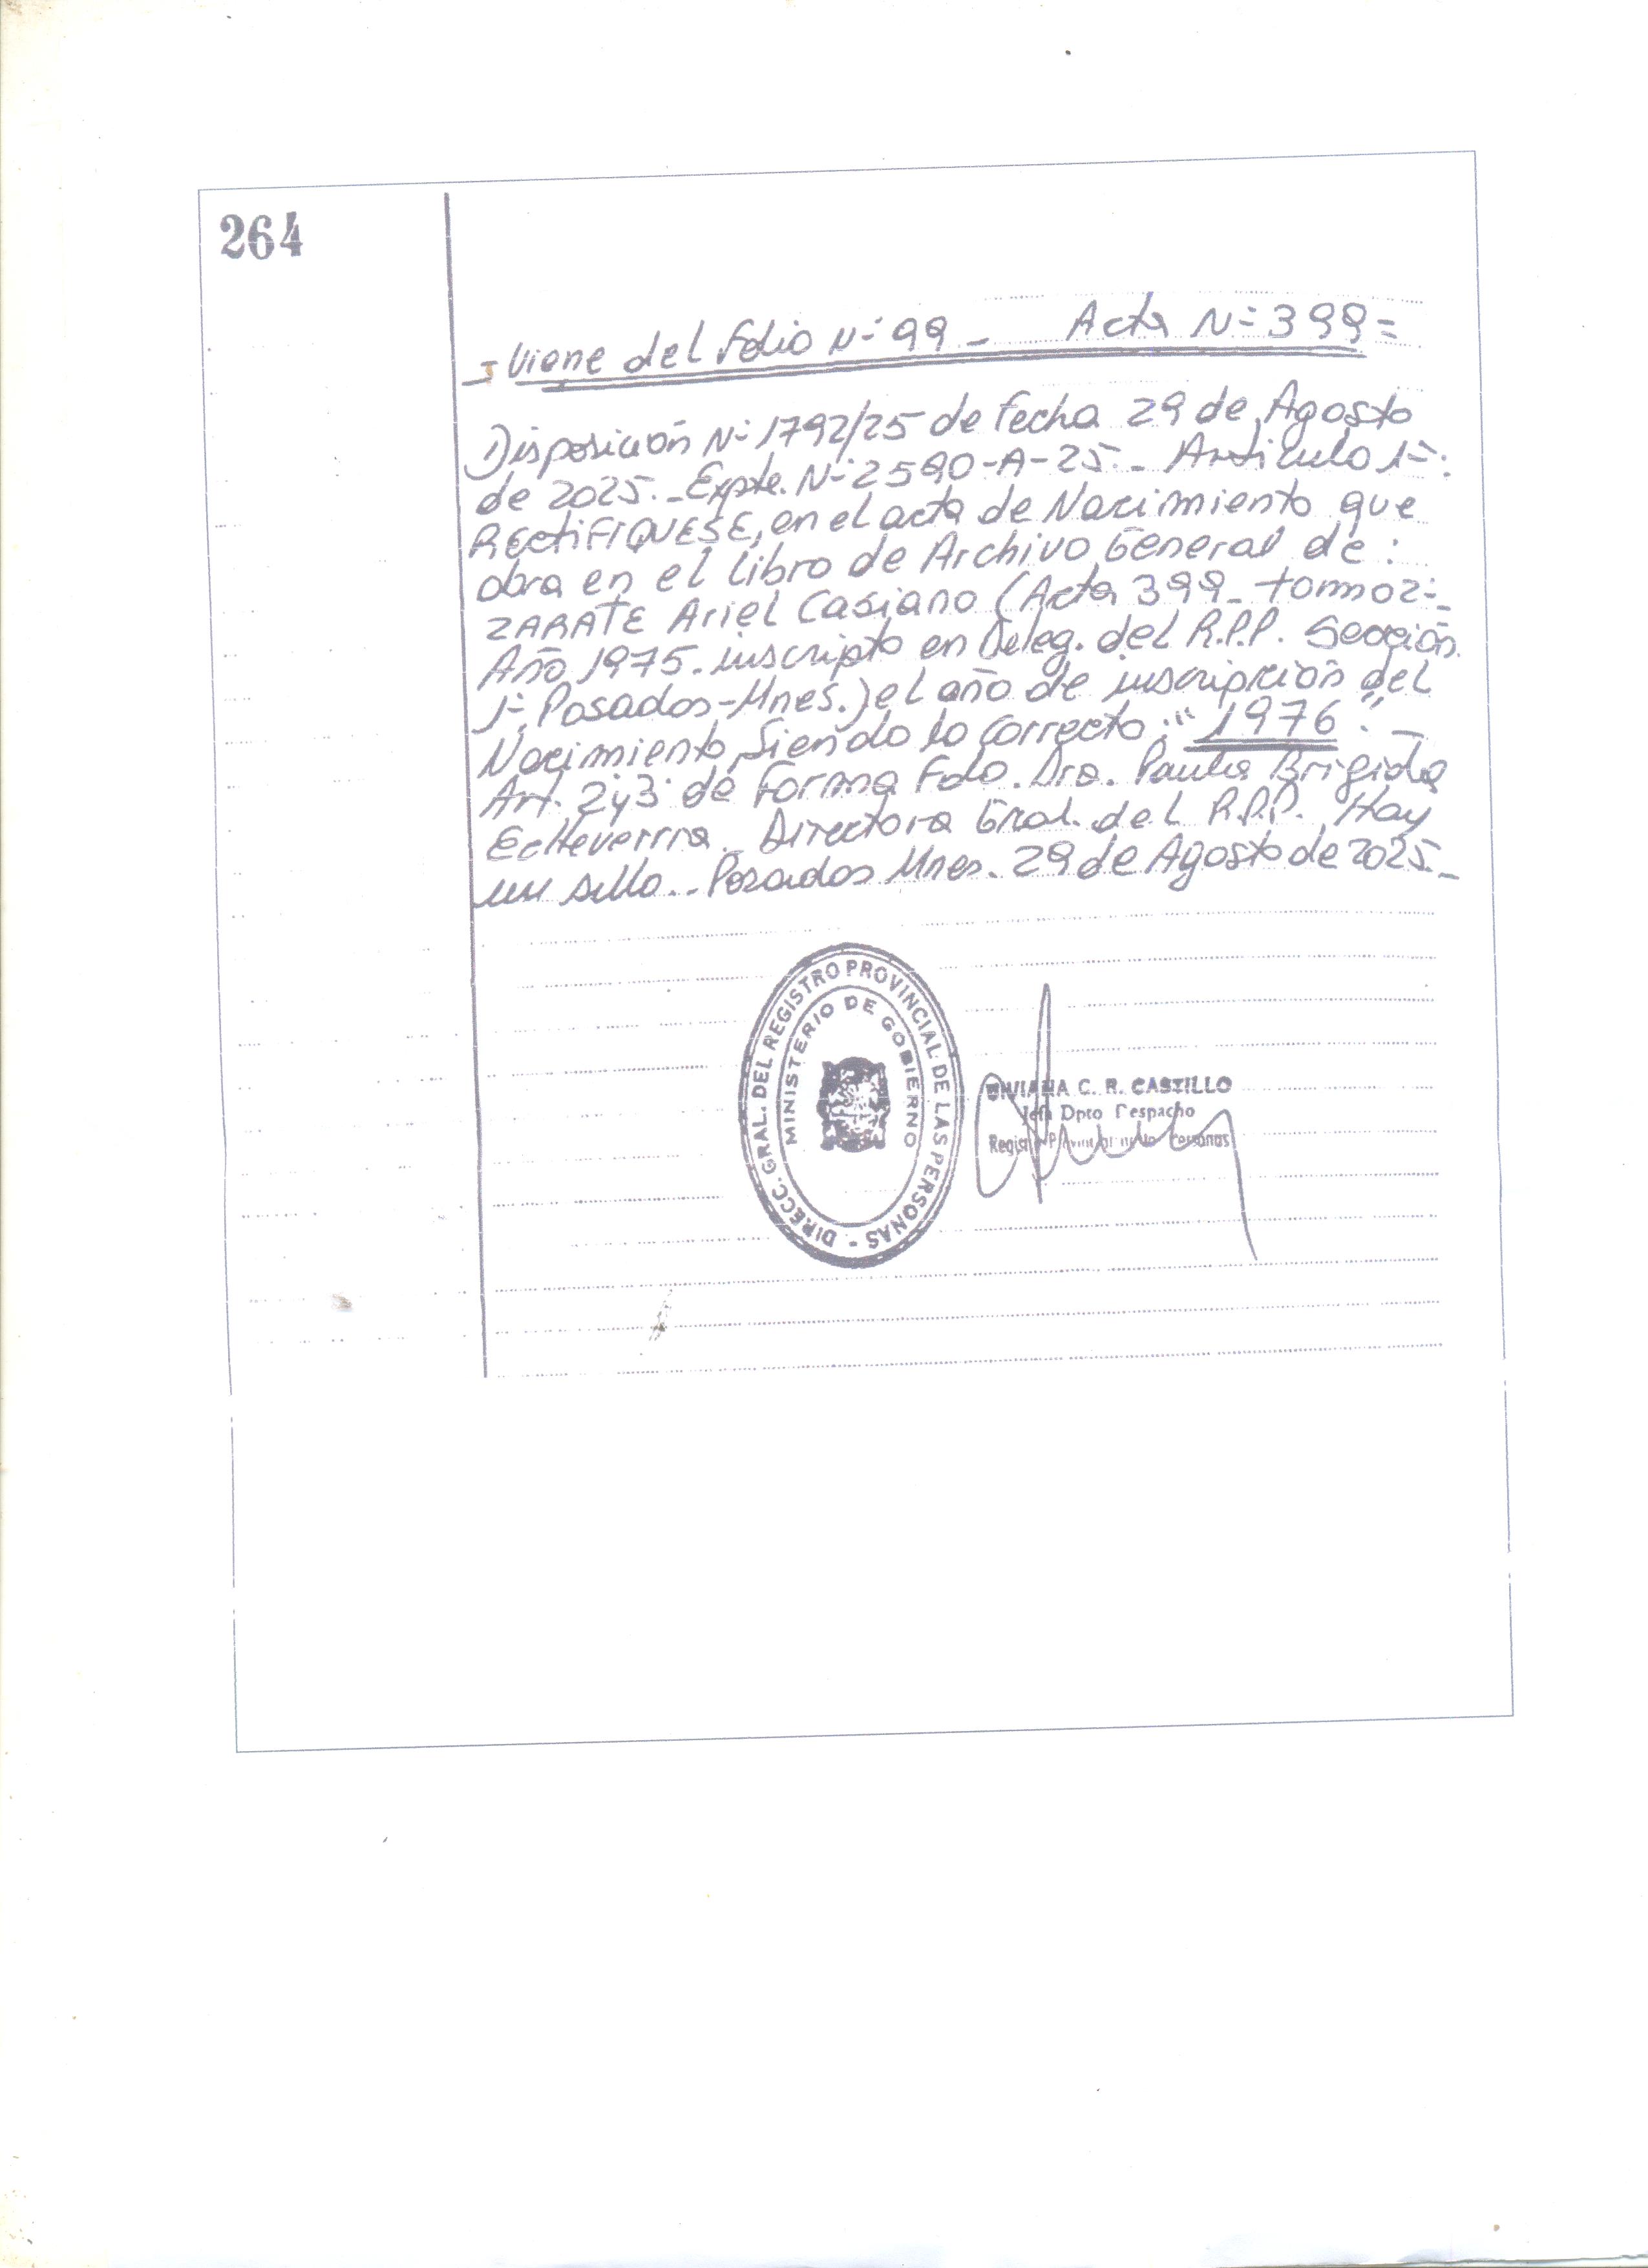 264
- Viene del folio N- 99 - Acta N- 399 =
Disposición N- 1792/25 de fecha 29 de Agosto
de 2025. - Expte. N- 2590-A-25. - Artículo 1-:
RECtiFIQUESE, en el acta de Nacimiento que
obra en el libro de Archivo General de:
ZARATE Ariel Casiano (Acta 399 - tomo 2-
Año 1975. inscripto en Deleg. del R.P.P. Sección
1- Posadas-Mnes.) el año de inscripción del
Nacimiento, Siendo lo correcto: "1976". -
Art. 2 y 3 de Forma Fdo. Dra. Paula Brigida
Echeverria. Directora Gral. del R.P.P. Hay
un sello. - Posadas Mnes. 29 de Agosto de 2025. -
DIRECC. GRAL. DEL REGISTRO PROVINCIAL DE LAS PERSONAS -
MINISTERIO DE GOBIERNO
C. R. CASTILLO
Jefa Dpto Despacho
Registro Provincial de las Personas